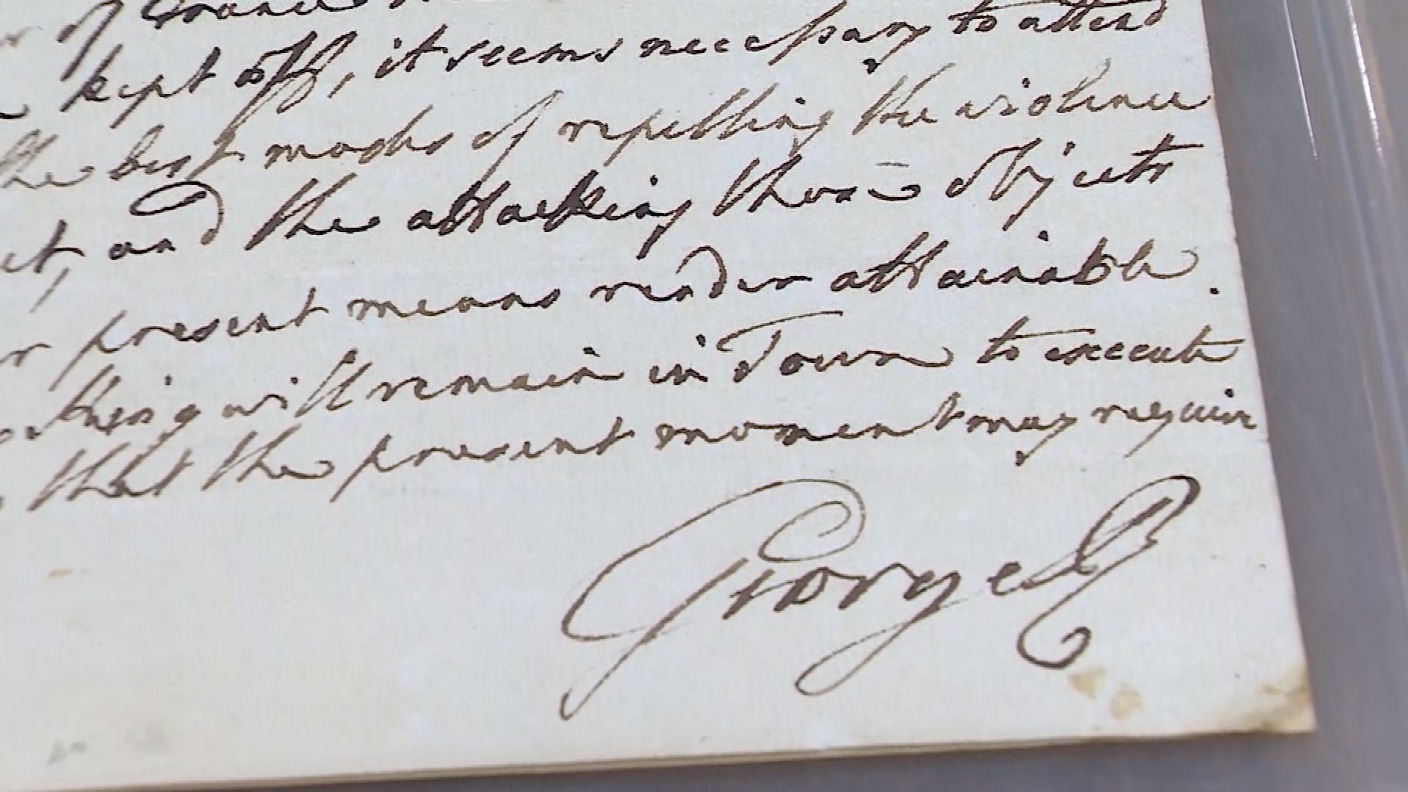 of France
kept off, it seems necessary to attend
the best modes of repelling the violence
it, and the attacking those objects
present means render attainable.
King will remain in Town to execute
that the present moment may require
George R